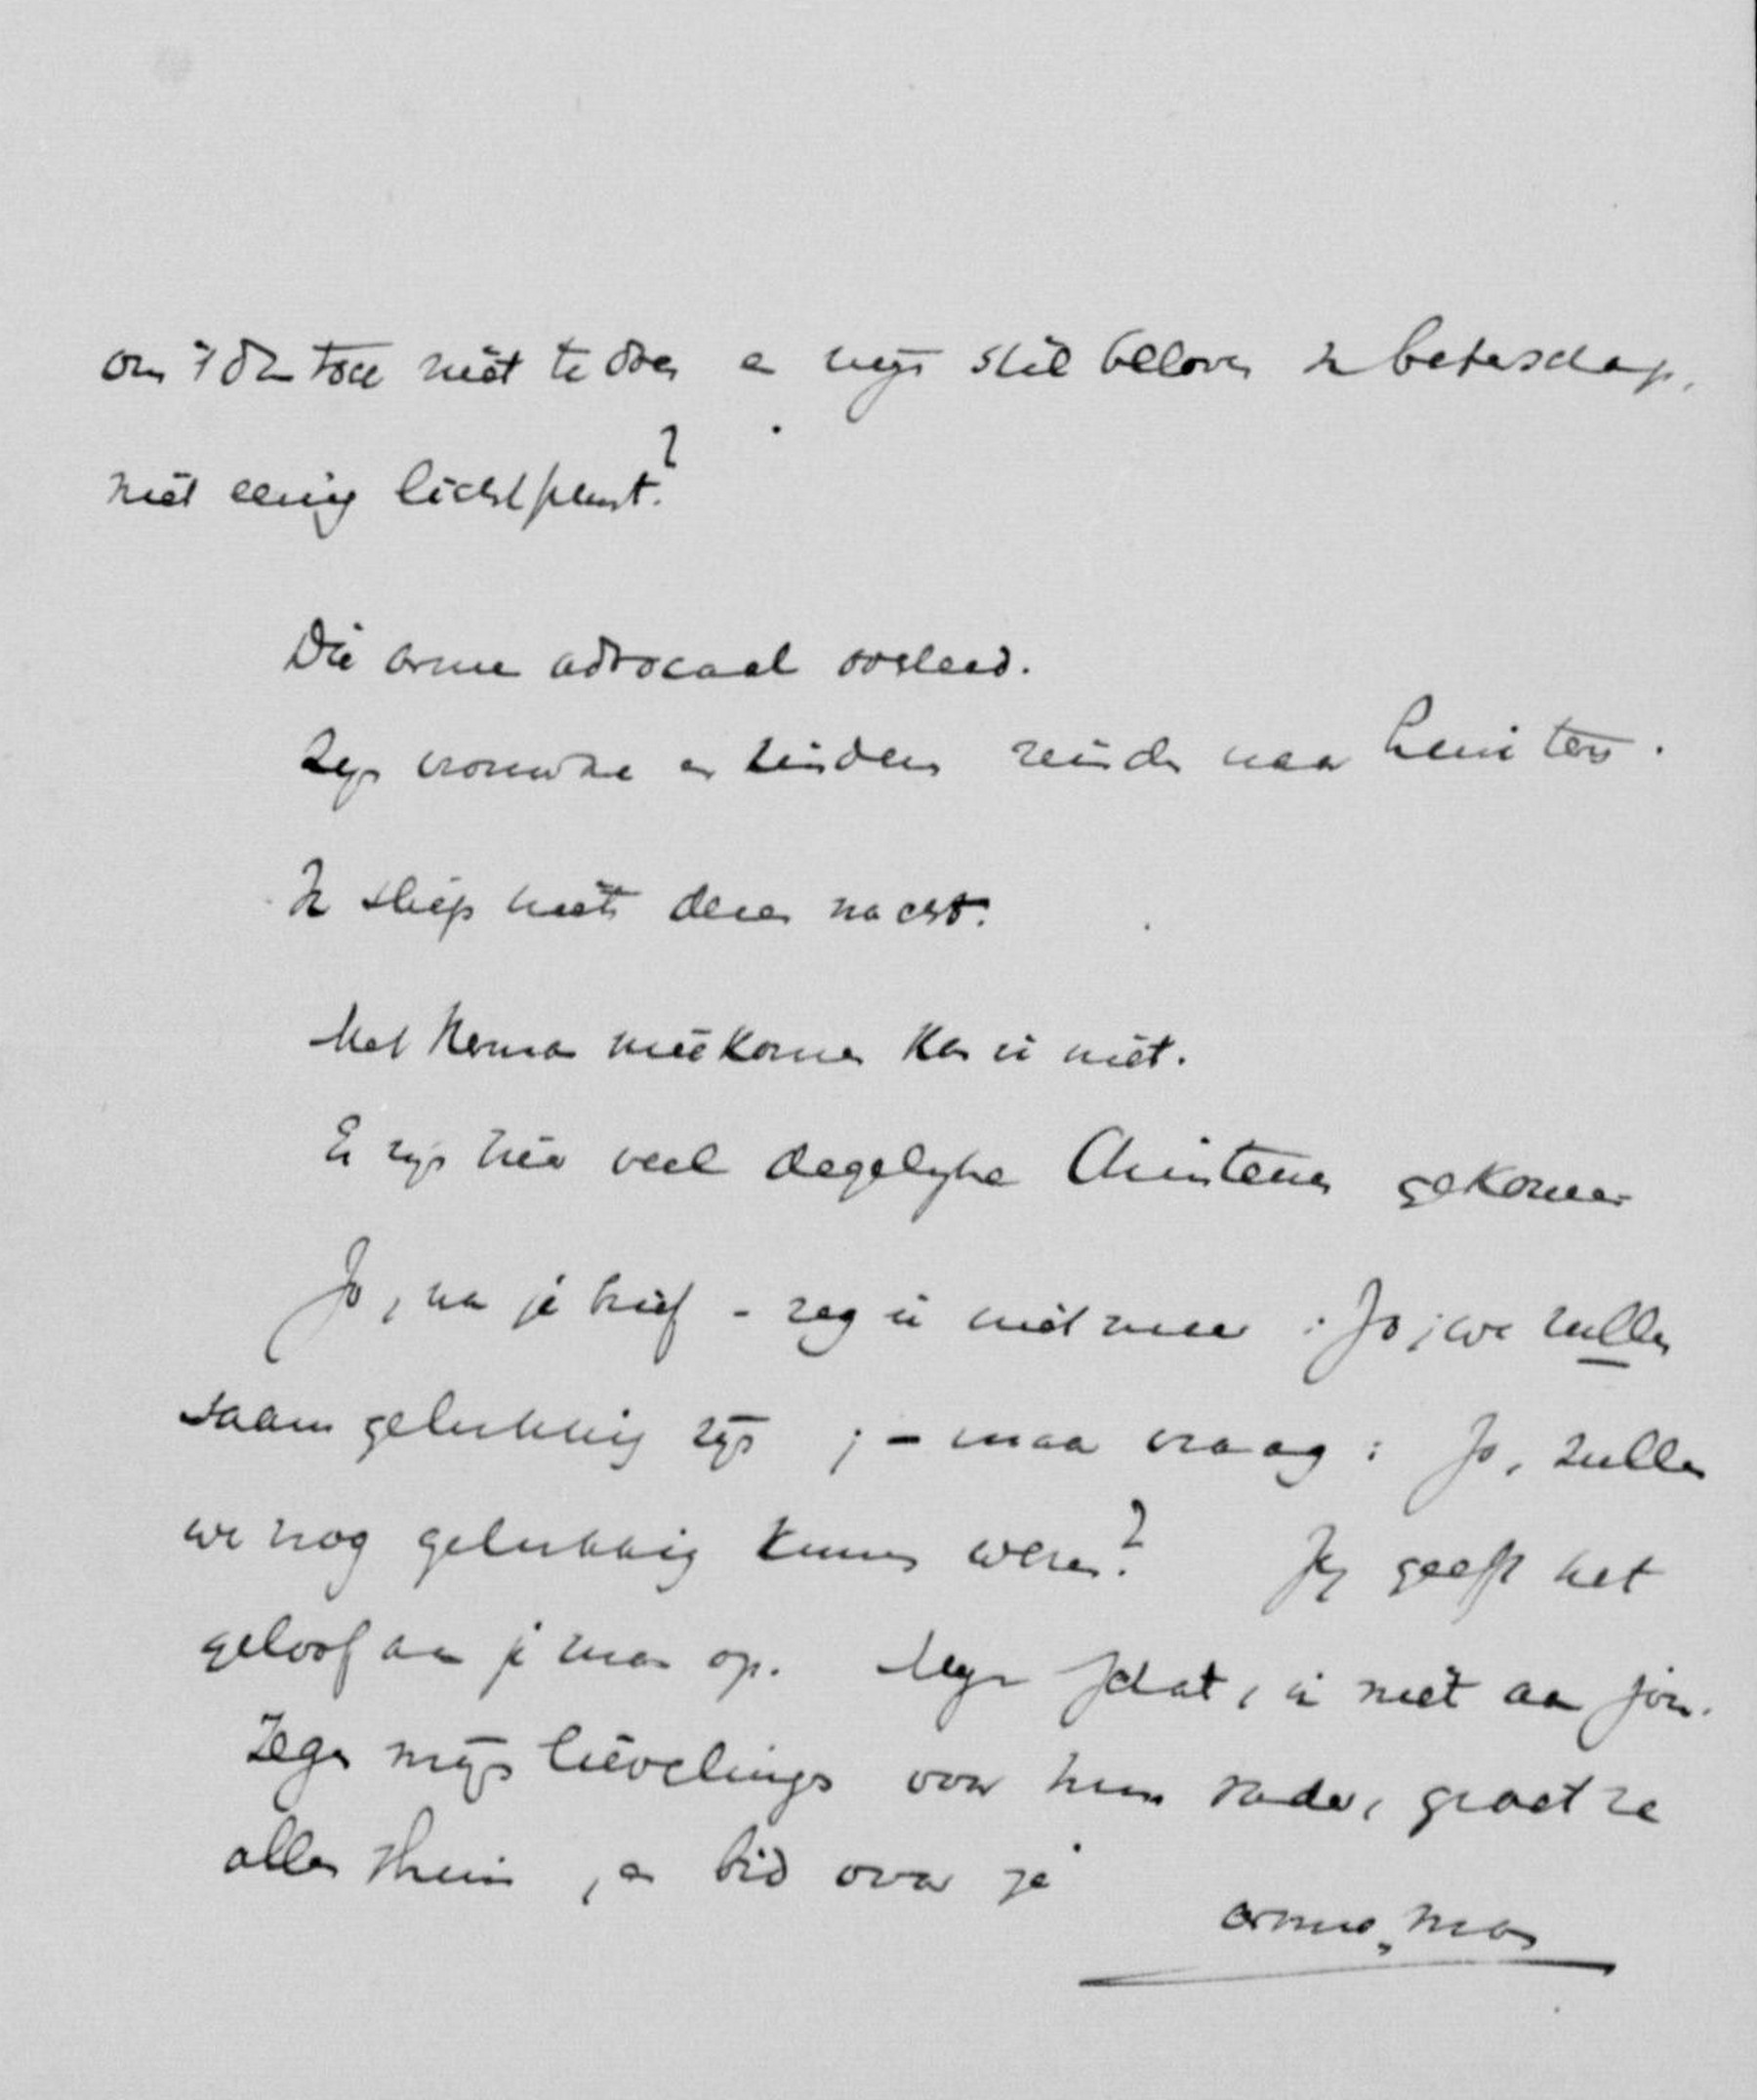 om 't dan toch niet te doen en mijn stil beloven
niet eenig lichtpunt?
Die arme advocaat
Zijn vrouwke en kinderen naar huis toe.
Ik sliep niet dezen nacht.
Met Herman meêkomen kan ik niet.
Er zijn hier veel degelijke Christenen gekomen
Jo, na je brief - zeg ik niet meer: Jo; we zullen
saam gelukkig zijn ; - maar vraag : Jo, zullen
we nog gelukkig kunnen wezen? Jij geeft het
geloof aan je man op. Mijn schat, ik niet aan jou.
Zegen mijn lievelings voor hun vader, groet ze
allen thuis, en bid voor je
arme man